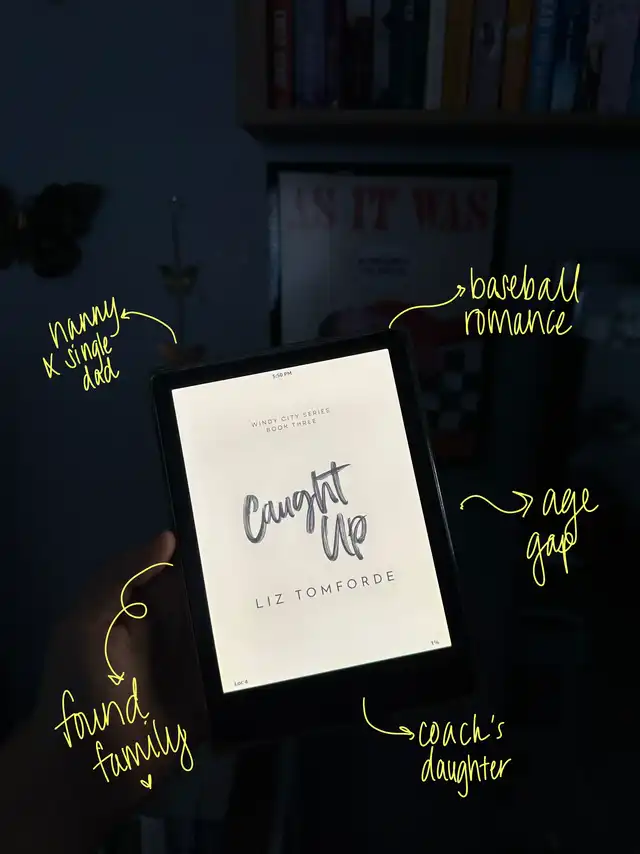 AS IT WAS
baseball
romance
nanny
x single
dad
5:50 PM
WINDY CITY SERIES
BOOK THREE
Caught
Up
LIZ TOMFORDE
age
gap
Loc 4
1%
found
family
coach's
daughter